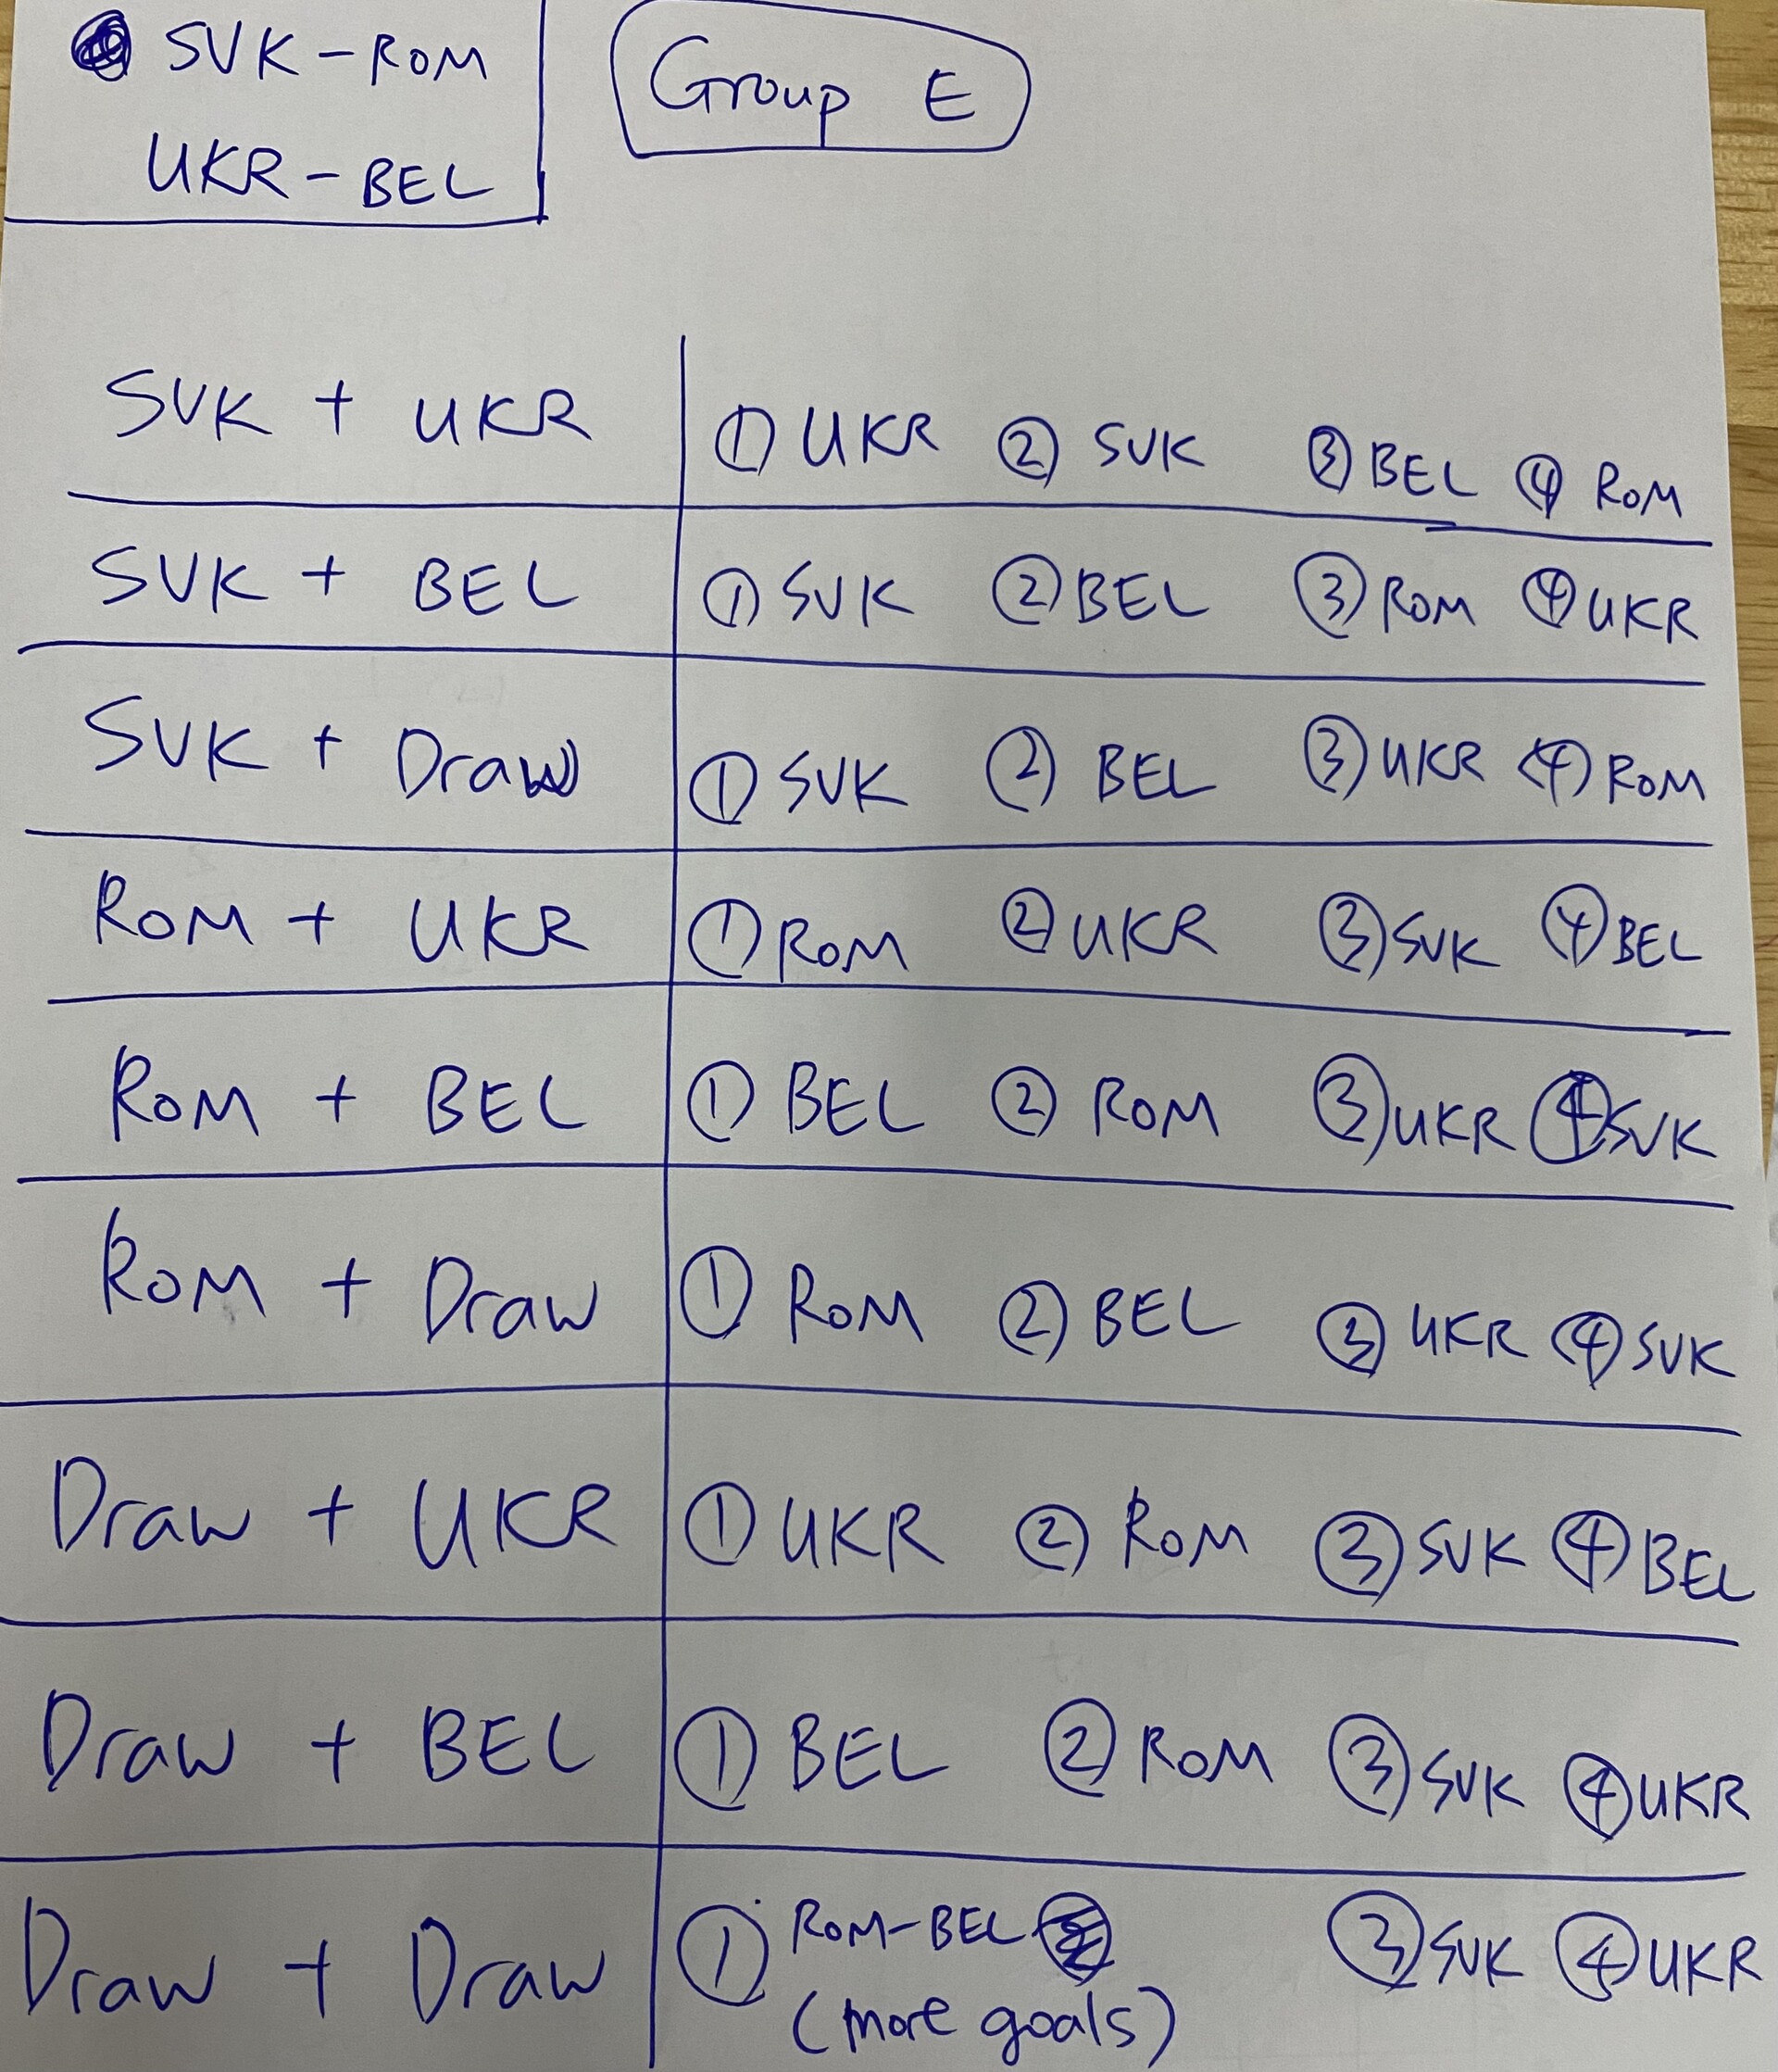 SVK-ROM
UKR-BEL
Group E
SVK + UKR ① UKR ② SVK ③ BEL ④ ROM
SVK + BEL ① SVK ② BEL ③ ROM ④ UKR
SVK + Draw ① SVK ② BEL ③ UKR ④ ROM
ROM + UKR ① ROM ② UKR ③ SVK ④ BEL
ROM + BEL ① BEL ② ROM ③ UKR ④ SVK
ROM + Draw ① ROM ② BEL ③ UKR ④ SVK
Draw + UKR ① UKR ② ROM ③ SVK ④ BEL
Draw + BEL ① BEL ② ROM ③ SVK ④ UKR
Draw + Draw ① ROM-BEL ③ SVK ④ UKR
(more goals)